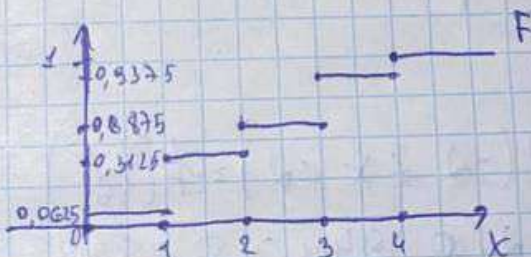 F
1
0,9375
0,6875
0,3125
0,0625
0 1 2 3 4 X